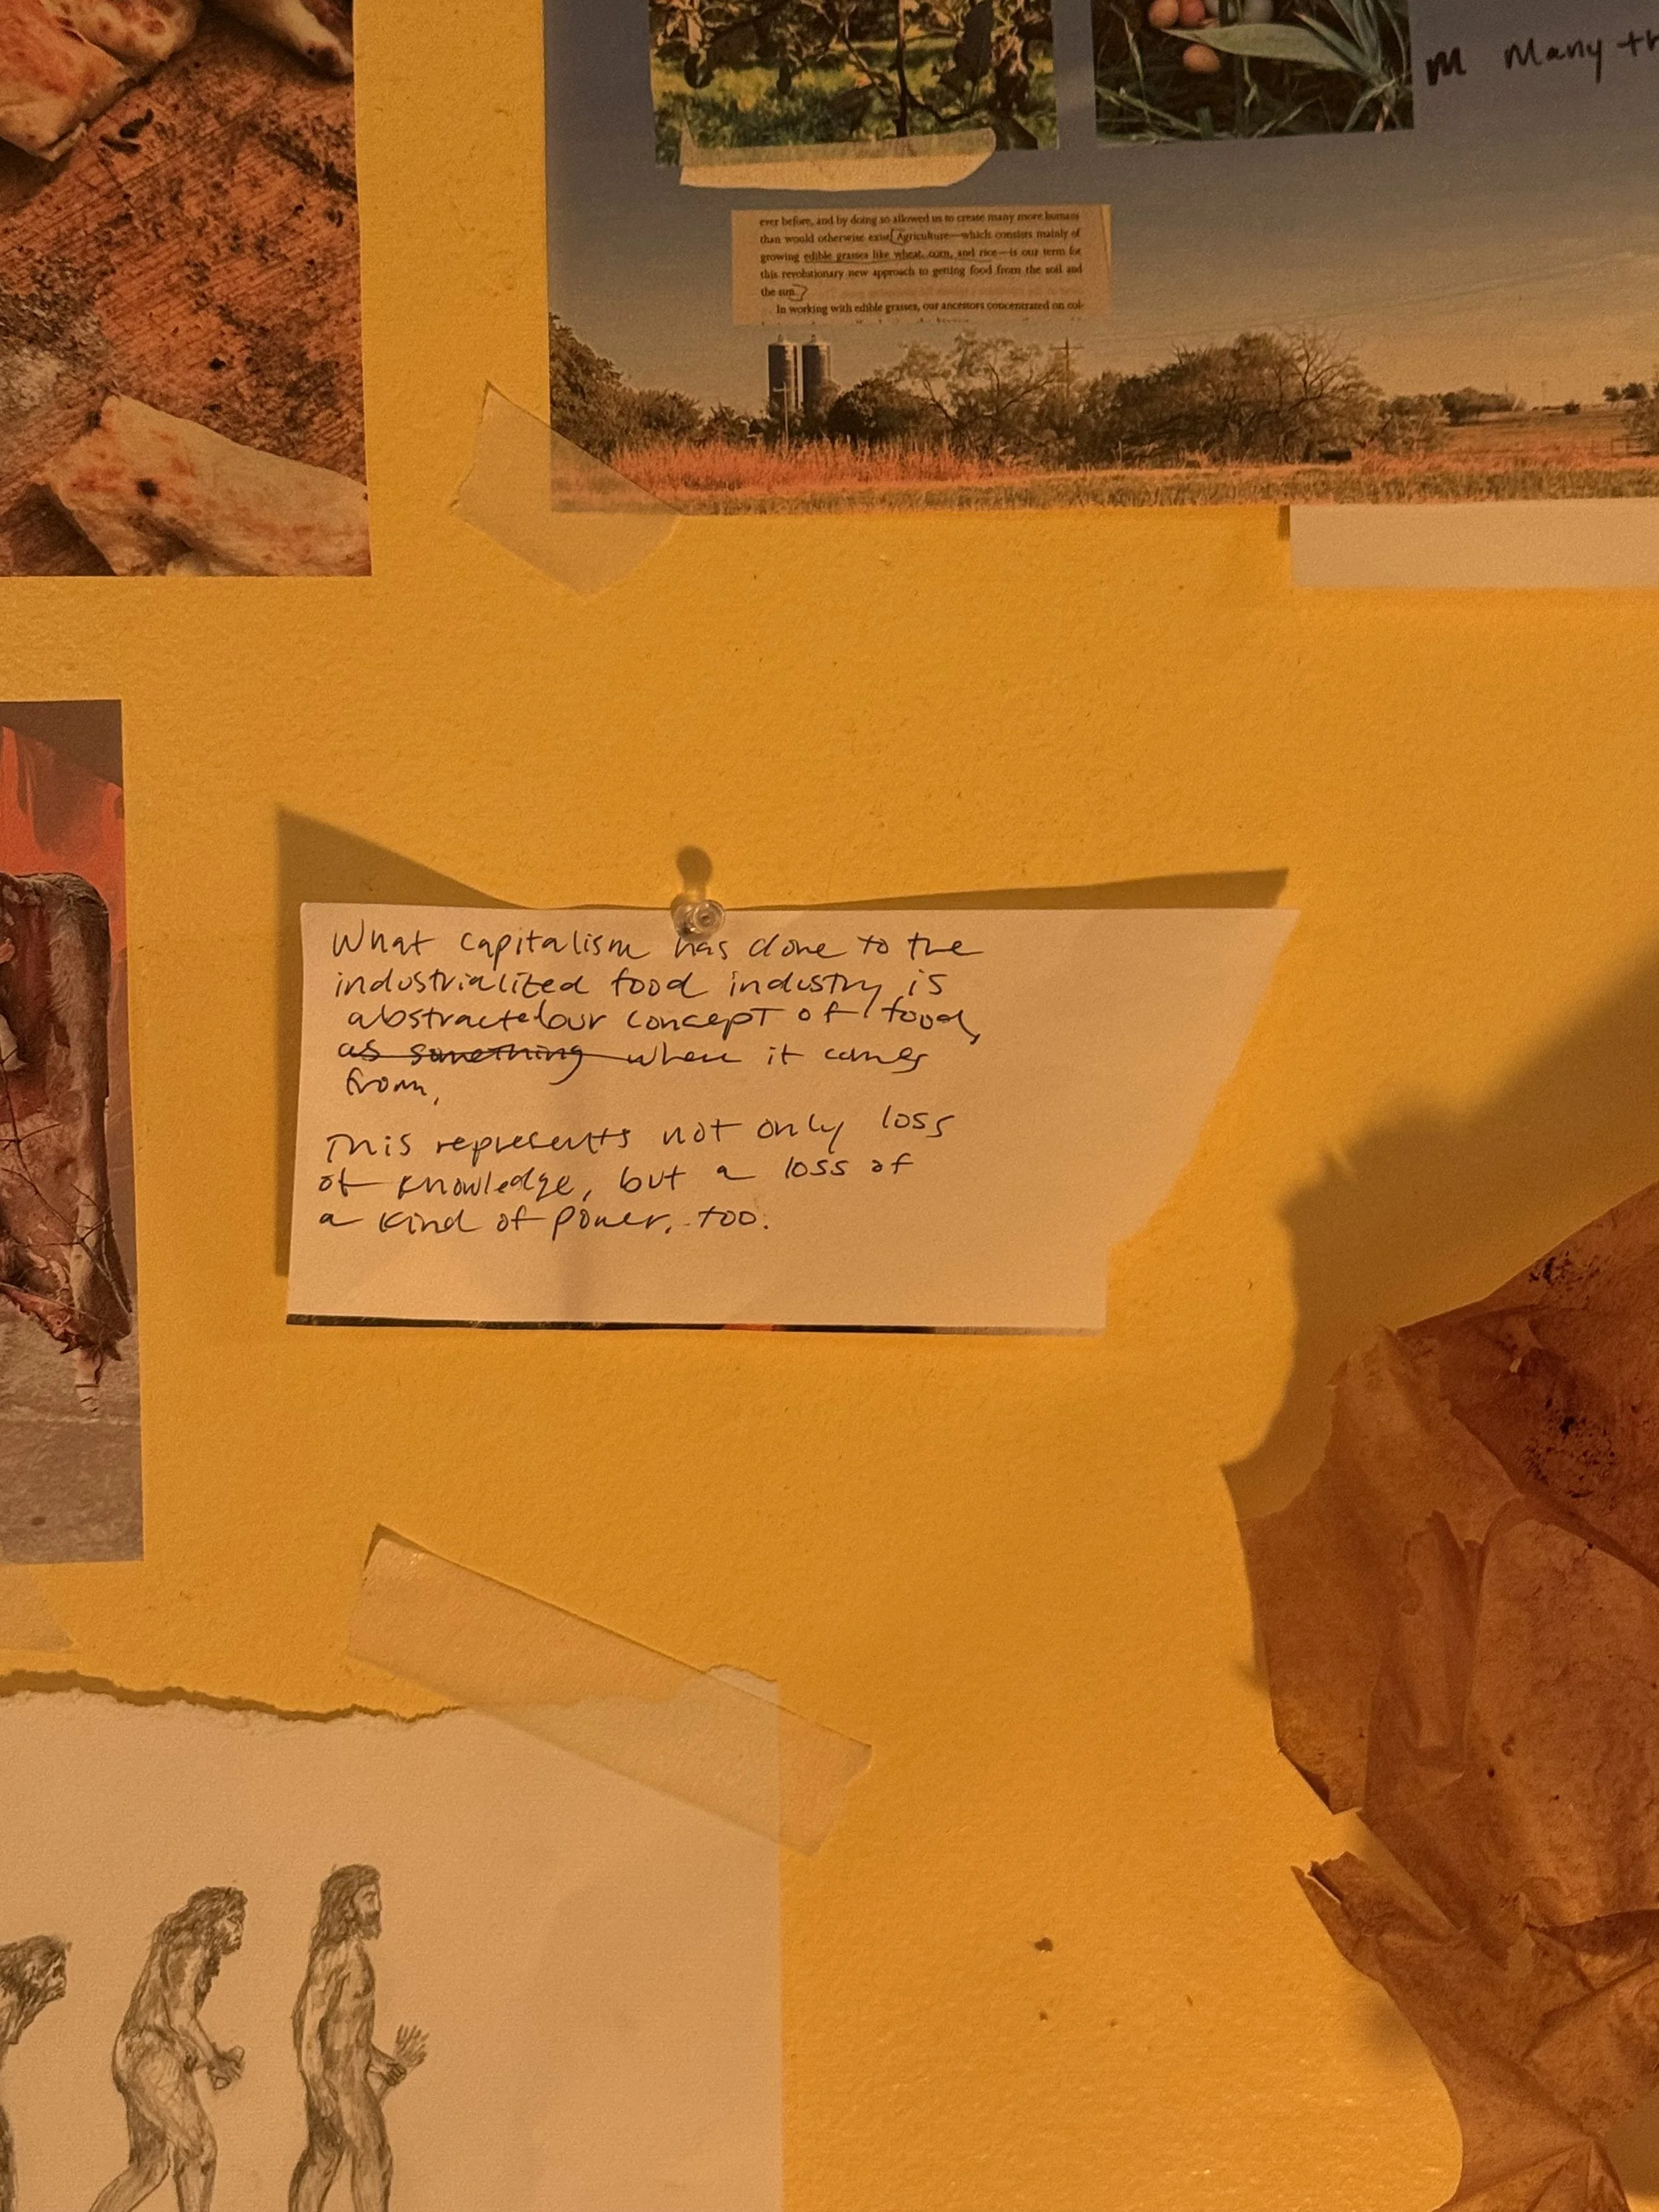 M Many th
ever before, and by doing so allowed us to create many more humans
than would otherwise exist. Agriculture—which consists mainly of
growing edible grasses like wheat, corn, and rice—is our term for
this revolutionary new approach to getting food from the soil and
the sun.
In working with edible grasses, our ancestors concentrated on col-
What capitalism has done to the
industrialized food industry is
abstracted our concept of food,
as something where it comes
from,
This represents not only loss
of knowledge, but a loss of
a kind of power, too.